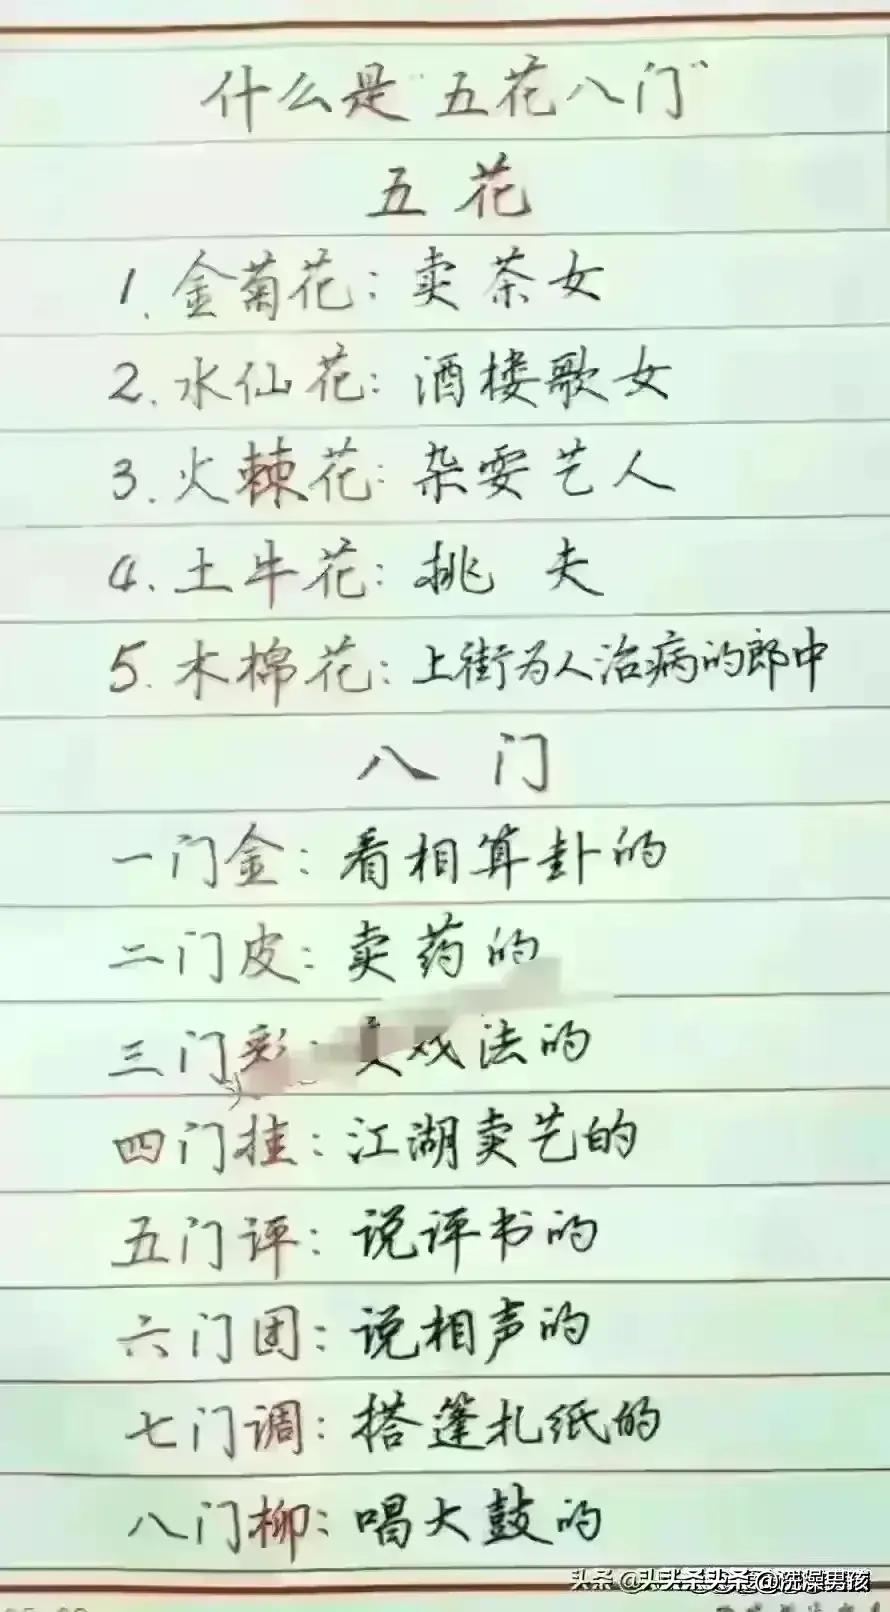 什么是"五花八门"
五花
1.金菊花:卖茶女
2.水仙花:酒楼歌女
3.火棘花:杂耍艺人
4.土牛花:挑夫
5.木棉花:上街为人治病的郎中
八门
一门金:看相算卦的
二门皮:卖药的
三门彩:戏法的
四门挂:江湖卖艺的
五门评:说评书的
六门团:说相声的
七门调:搭篷扎纸的
八门柳:唱大鼓的
头条 @洗澡男孩